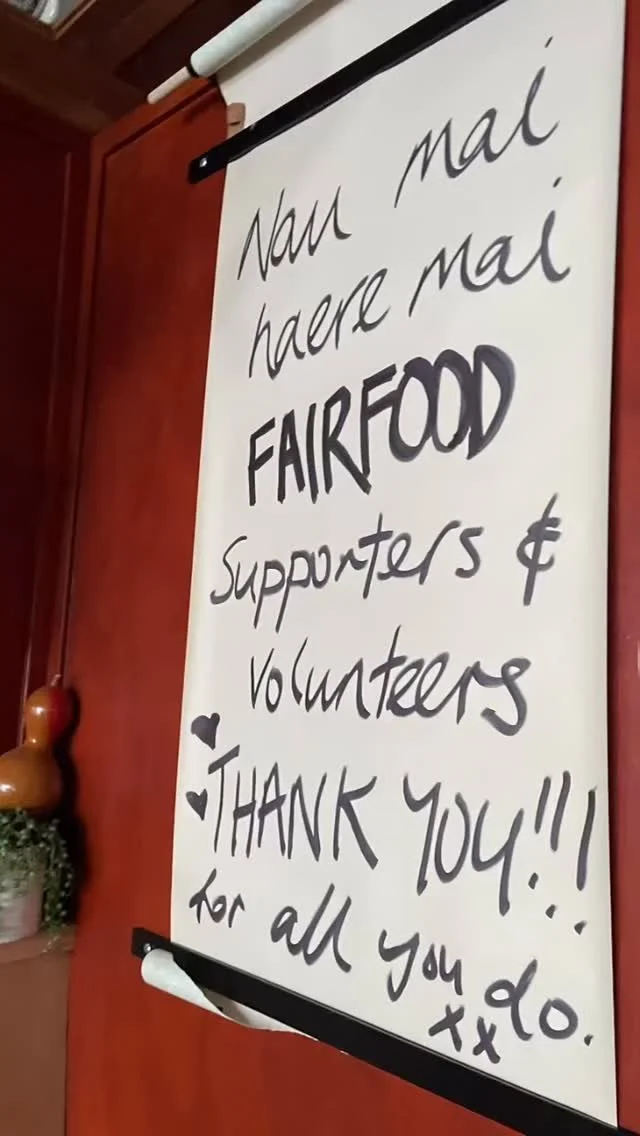 Nau mai
haere mai
FAIRFOOD
Supporters &
Volunteers
THANK YOU!!!
for all you do.
xx